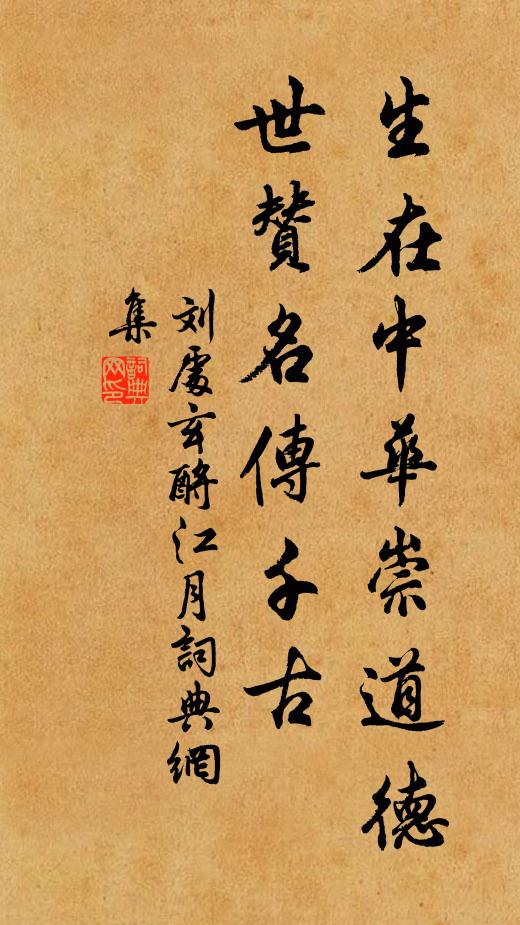 生在中华崇道德
世赞名傳千古
刘處玄酹江月詞典網
集
詞典网印